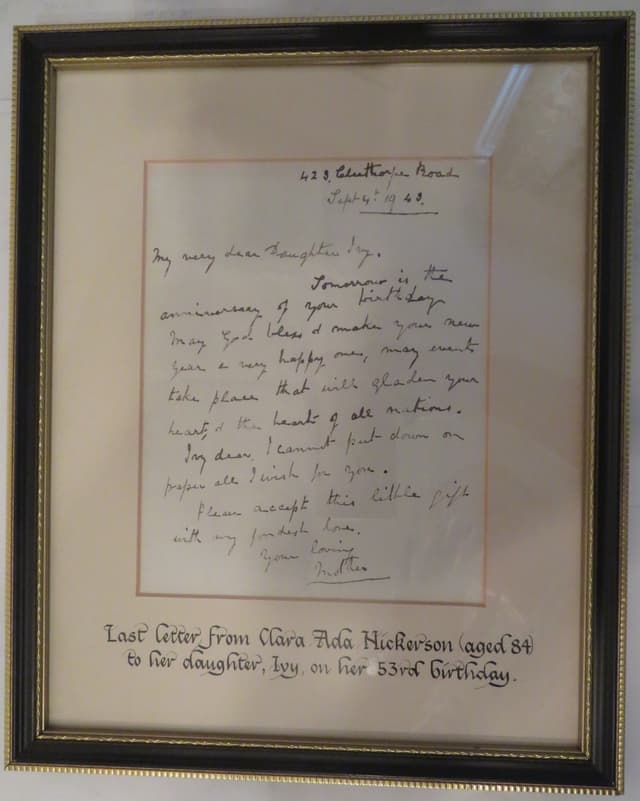 423, Cleethorpe Road
Sept 4th 1943.
My very dear Daughter Ivy.
Tomorrow is the
anniversary of your birthday
May God bless & make your new
year a very happy one, may events
take place that will gladen your
heart, & the heart of all nations.
Ivy dear, I cannot put down on
paper all I wish for you.
Please accept this little gift
with my fondest love.
Your loving
Mother
Last letter from Clara Ada Nickerson (aged 84)
to her daughter, Ivy, on her 53rd birthday.